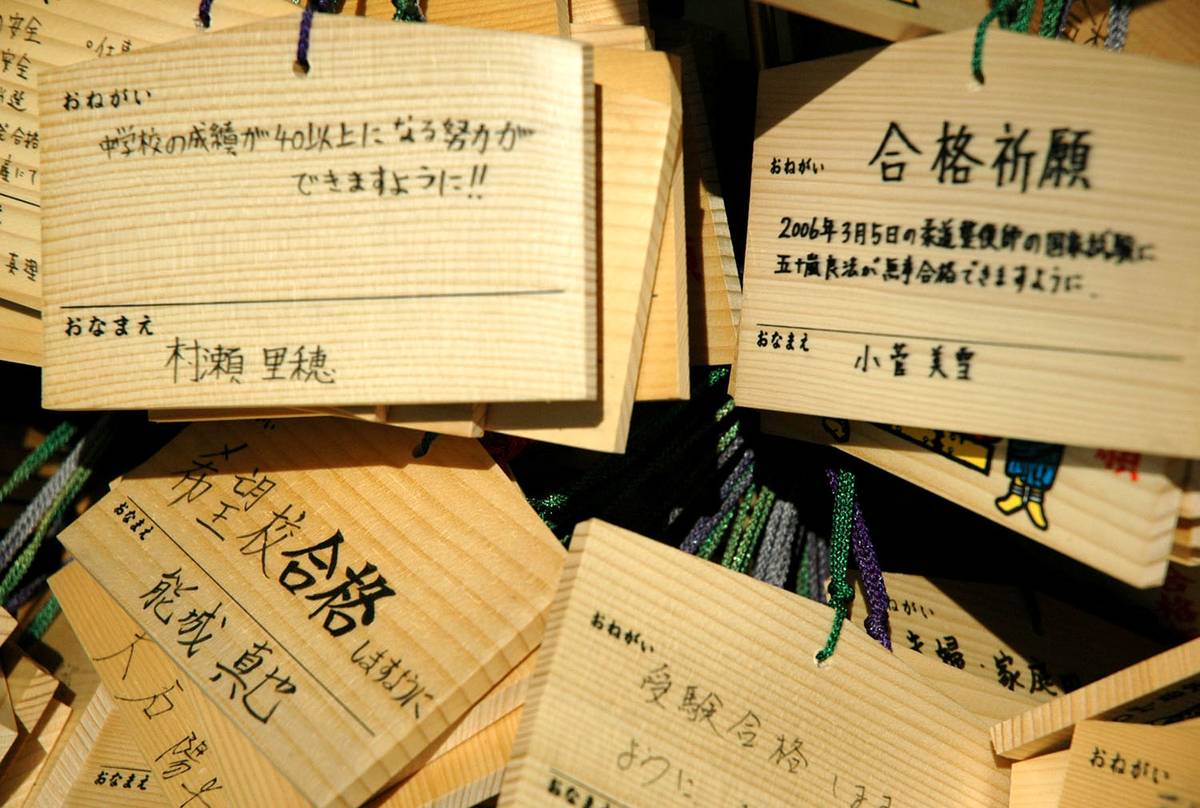 安全
安全
合格
真理
おねがい
中学校の成績が40以上になる努力が
できますように!!
おなまえ
村瀬 里穂
おねがい
合格祈願
2006年3月5日の柔道整復師の国家試験に
五十嵐良法が無事合格できますように.
おなまえ
小菅 美雪
希望校合格
しますように
おなまえ
能城 真也
大石 陽
おなまえ
おねがい
受験合格します
ように
おなまえ
ねがい
夫婦・家庭
おねがい